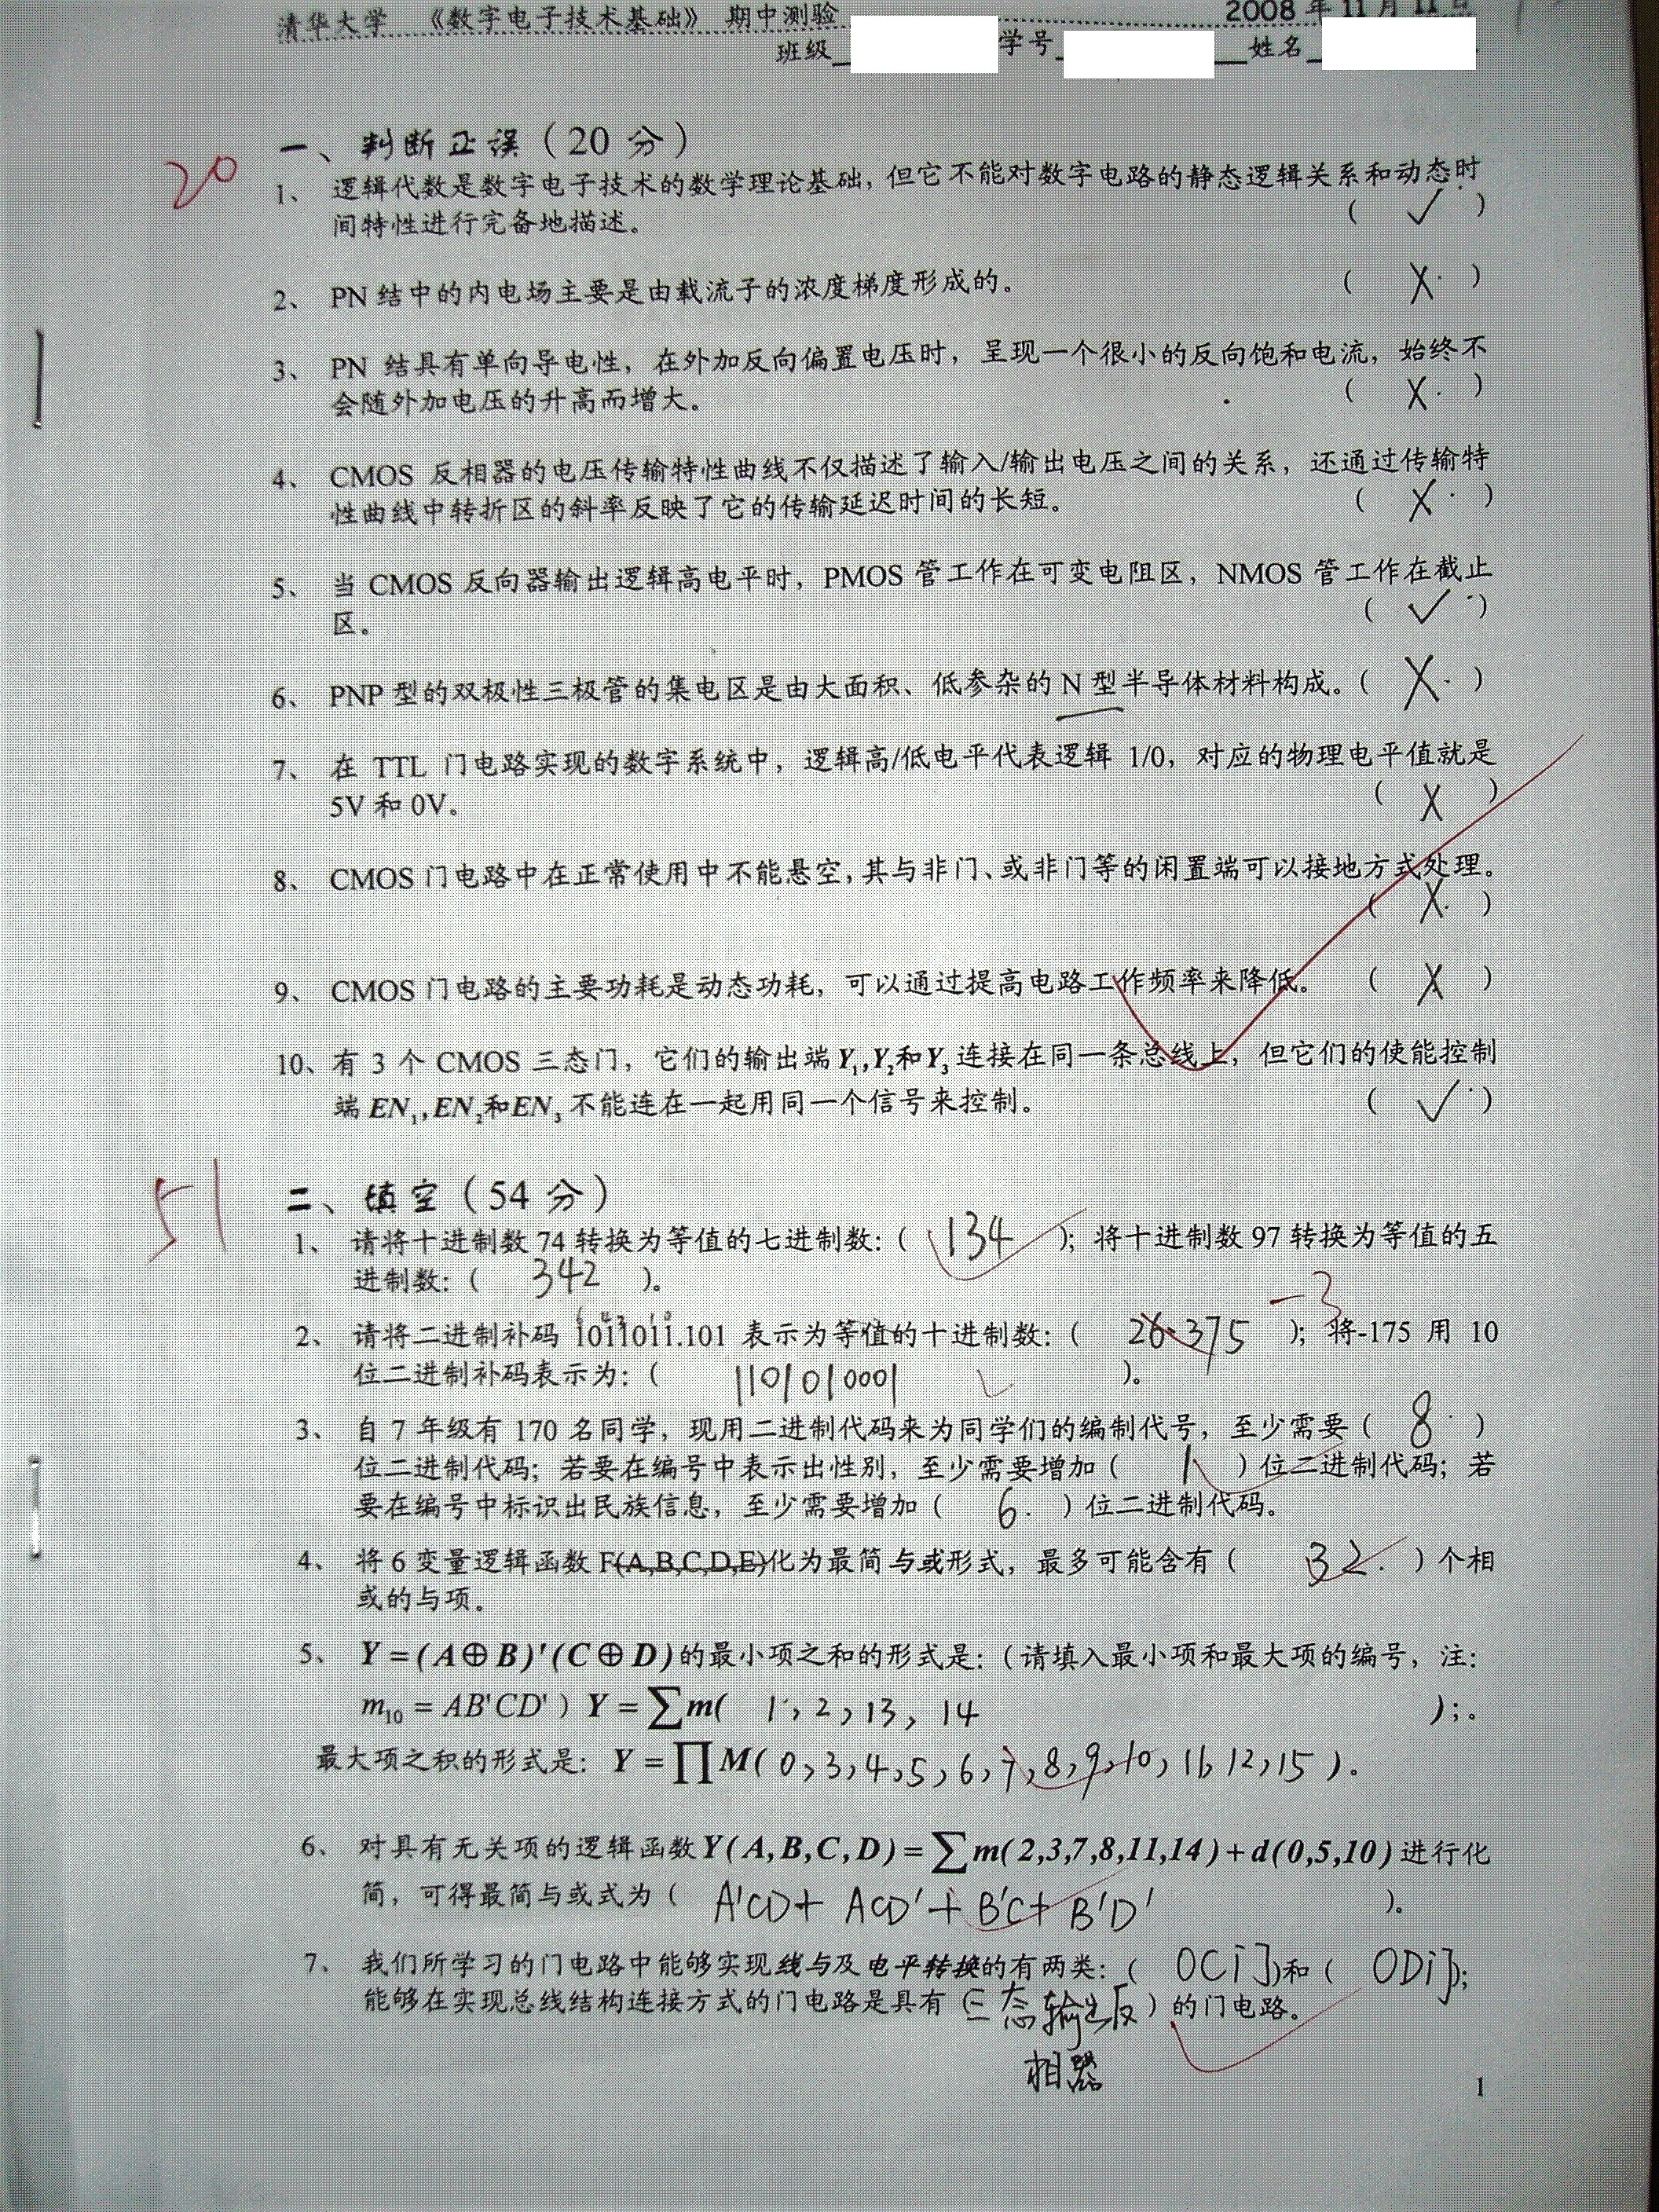 清华大学 《数字电子技术基础》 期中测验 2008 年 11 月 11 日
班级 学号 姓名
20
一、判断正误（20 分）
1、 逻辑代数是数字电子技术的数学理论基础，但它不能对数字电路的静态逻辑关系和动态时
间特性进行完备地描述。 （ ✓ ）
2、 PN 结中的内电场主要是由载流子的浓度梯度形成的。 （ X ）
3、 PN 结具有单向导电性，在外加反向偏置电压时，呈现一个很小的反向饱和电流，始终不
会随外加电压的升高而增大。 （ X ）
4、 CMOS 反相器的电压传输特性曲线不仅描述了输入/输出电压之间的关系，还通过传输特
性曲线中转折区的斜率反映了它的传输延迟时间的长短。 （ X ）
5、 当 CMOS 反向器输出逻辑高电平时，PMOS 管工作在可变电阻区，NMOS 管工作在截止
区。 （ ✓ ）
6、 PNP 型的双极性三极管的集电区是由大面积、低参杂的 N 型半导体材料构成。（ X ）
7、 在 TTL 门电路实现的数字系统中，逻辑高/低电平代表逻辑 1/0，对应的物理电平值就是
5V 和 0V。 （ X ）
8、 CMOS 门电路中在正常使用中不能悬空，其与非门、或非门等的闲置端可以接地方式处理。
（ X ）
9、 CMOS 门电路的主要功耗是动态功耗，可以通过提高电路工作频率来降低。 （ X ）
10、有 3 个 CMOS 三态门，它们的输出端 Y₁,Y₂和Y₃ 连接在同一条总线上，但它们的使能控制
端 EN₁,EN₂和EN₃ 不能连在一起用同一个信号来控制。 （ ✓ ）
51
二、填空（54 分）
1、 请将十进制数 74 转换为等值的七进制数：（ 134 ）；将十进制数 97 转换为等值的五
进制数：（ 342 ）。
-3
2、 请将二进制补码 1011011.101 表示为等值的十进制数：（ 26.375 ）；将-175 用 10
位二进制补码表示为：（ 1101010001 ）。
3、 自 7 年级有 170 名同学，现用二进制代码来为同学们的编制代号，至少需要（ 8 ）
位二进制代码；若要在编号中表示出性别，至少需要增加（ 1 ）位二进制代码；若
要在编号中标识出民族信息，至少需要增加（ 6 ）位二进制代码。
4、 将 6 变量逻辑函数 F(A,B,C,D,E)化为最简与或形式，最多可能含有（ 32 ）个相
或的与项。
5、 Y=(A⊕B)'(C⊕D)的最小项之和的形式是：（请填入最小项和最大项的编号，注：
m₁₀ = AB'CD' ）Y=∑m( 1, 2, 13, 14 );。
最大项之积的形式是：Y=∏M( 0,3,4,5,6,7,8,9,10,11,12,15 )。
6、 对具有无关项的逻辑函数Y(A,B,C,D)=∑m(2,3,7,8,11,14)+d(0,5,10)进行化
简，可得最简与或式为（ A'CD+ ACD'+ B'C+ B'D' ）。
7、 我们所学习的门电路中能够实现线与及电平转换的有两类：（ OC门 ）和（ OD门 ）；
能够在实现总线结构连接方式的门电路是具有（三态输出反）的门电路。
相器
1